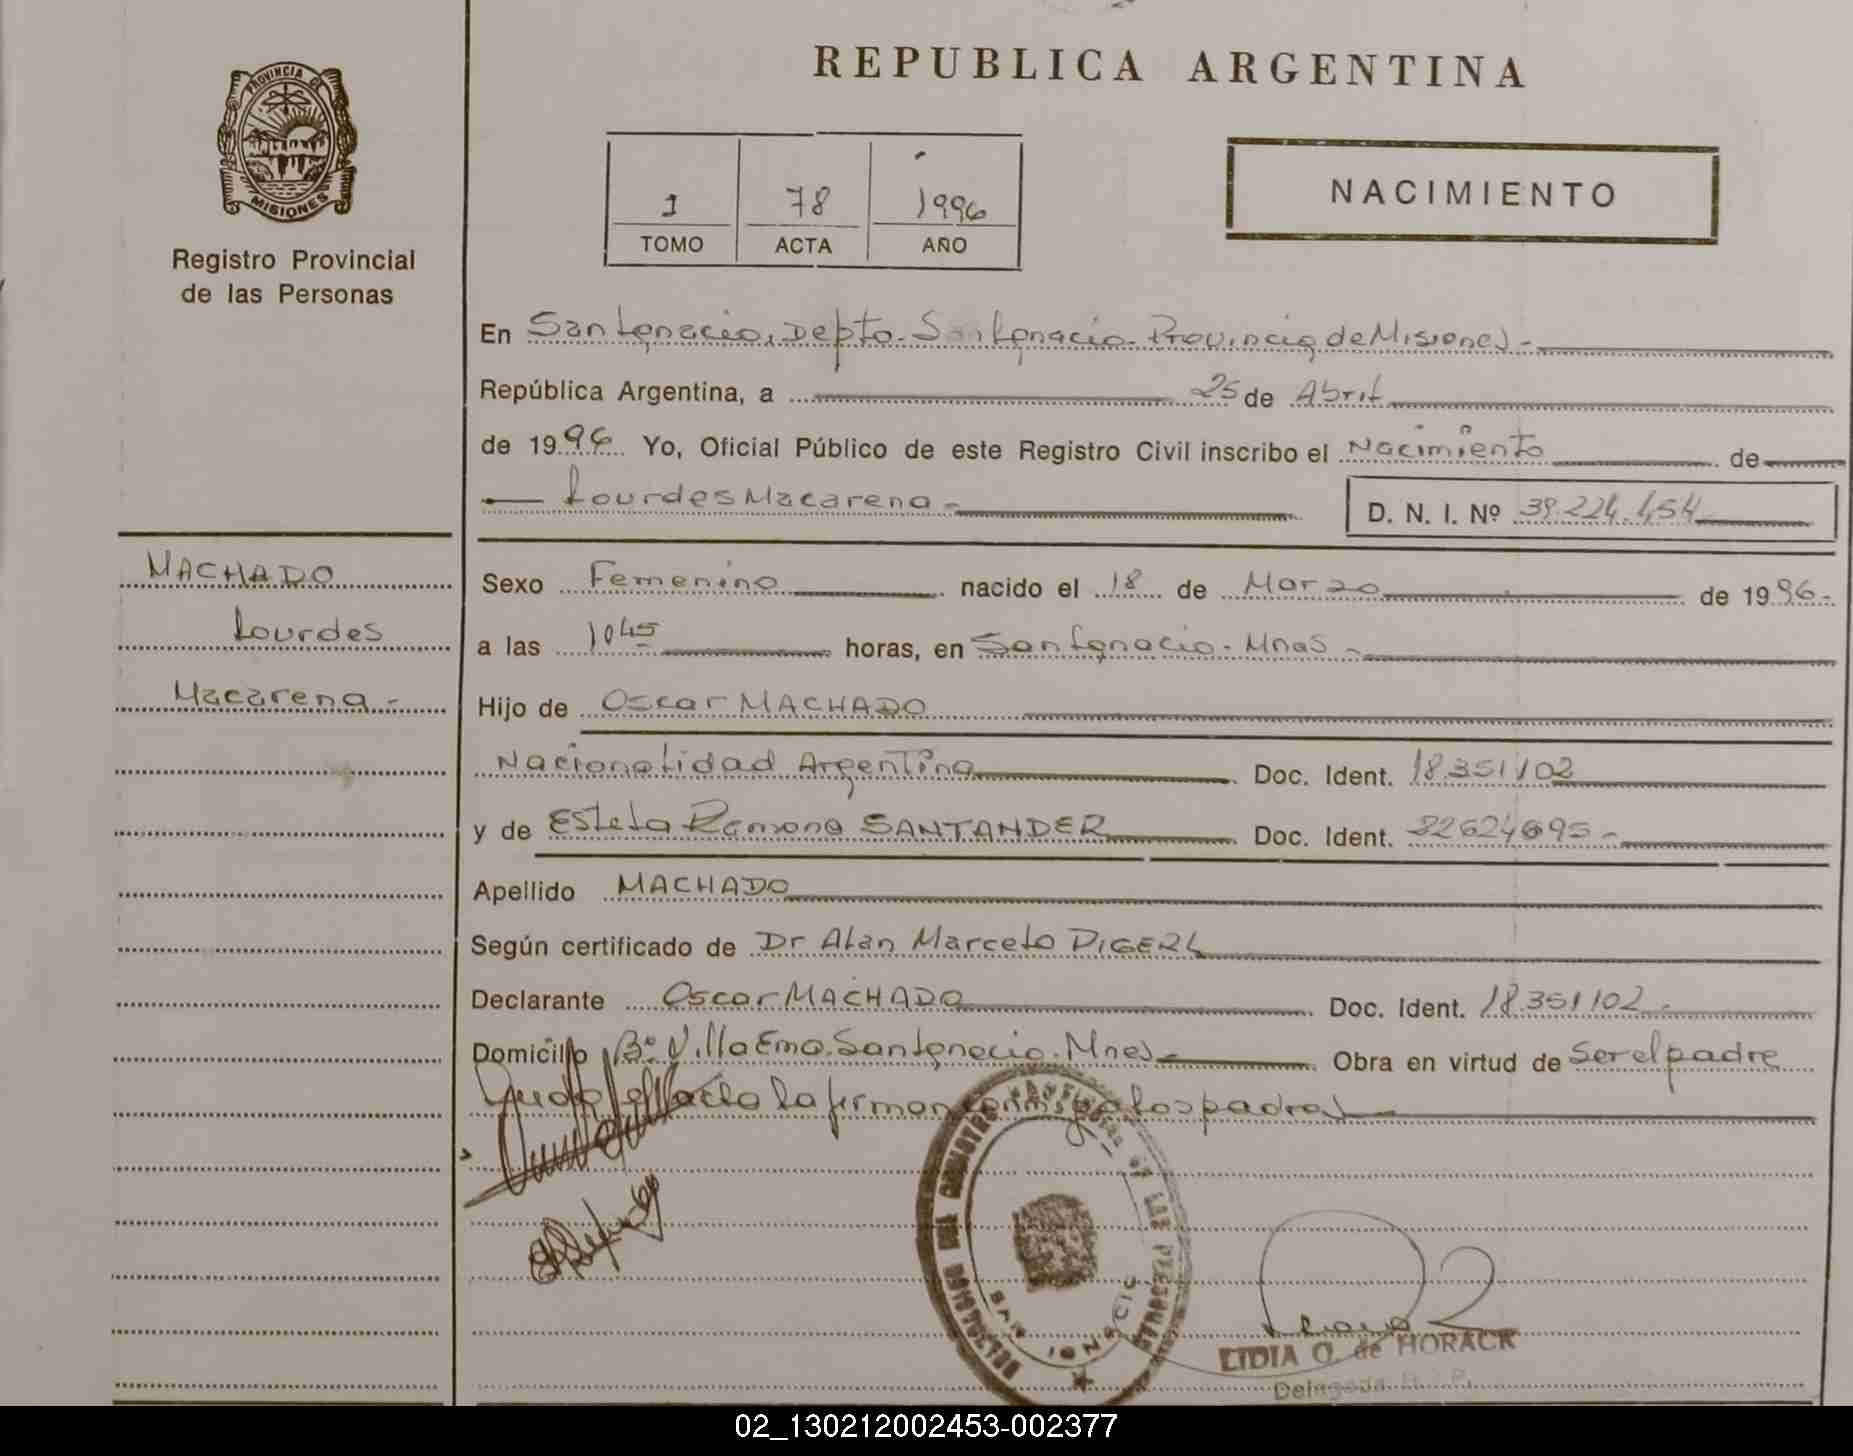 REPUBLICA ARGENTINA
PROVINCIA DE
MISIONES
Registro Provincial
de las Personas
1 78 1996
TOMO ACTA AÑO
NACIMIENTO
En San Ignacio, Depto. San Ignacio. Provincia de Misiones -
República Argentina, a 25 de Abril
de 1996 Yo, Oficial Público de este Registro Civil inscribo el Nacimiento de
Lourdes Macarena - D. N. I. Nº 39.224.454
MACHADO
Lourdes
Macarena -
Sexo Femenino nacido el 18 de Marzo de 1996-
a las 1045 horas, en San Ignacio. Mnes -
Hijo de Oscar MACHADO
Nacionalidad Argentina Doc. Ident. 18.351102
y de Estela Ramona SANTANDER Doc. Ident. 22624695-
Apellido MACHADO
Según certificado de Dr Alan Marcelo DIGERL
Declarante Oscar MACHADO Doc. Ident. 18.351102-
Domicilio Bº Villa Ema. San Ignacio. Mnes- Obra en virtud de Ser el padre
acta la firman conmigo los padres
SAN IGNACIO
LIDIA O. de HORACK
Delegada R. P.
02_130212002453-002377